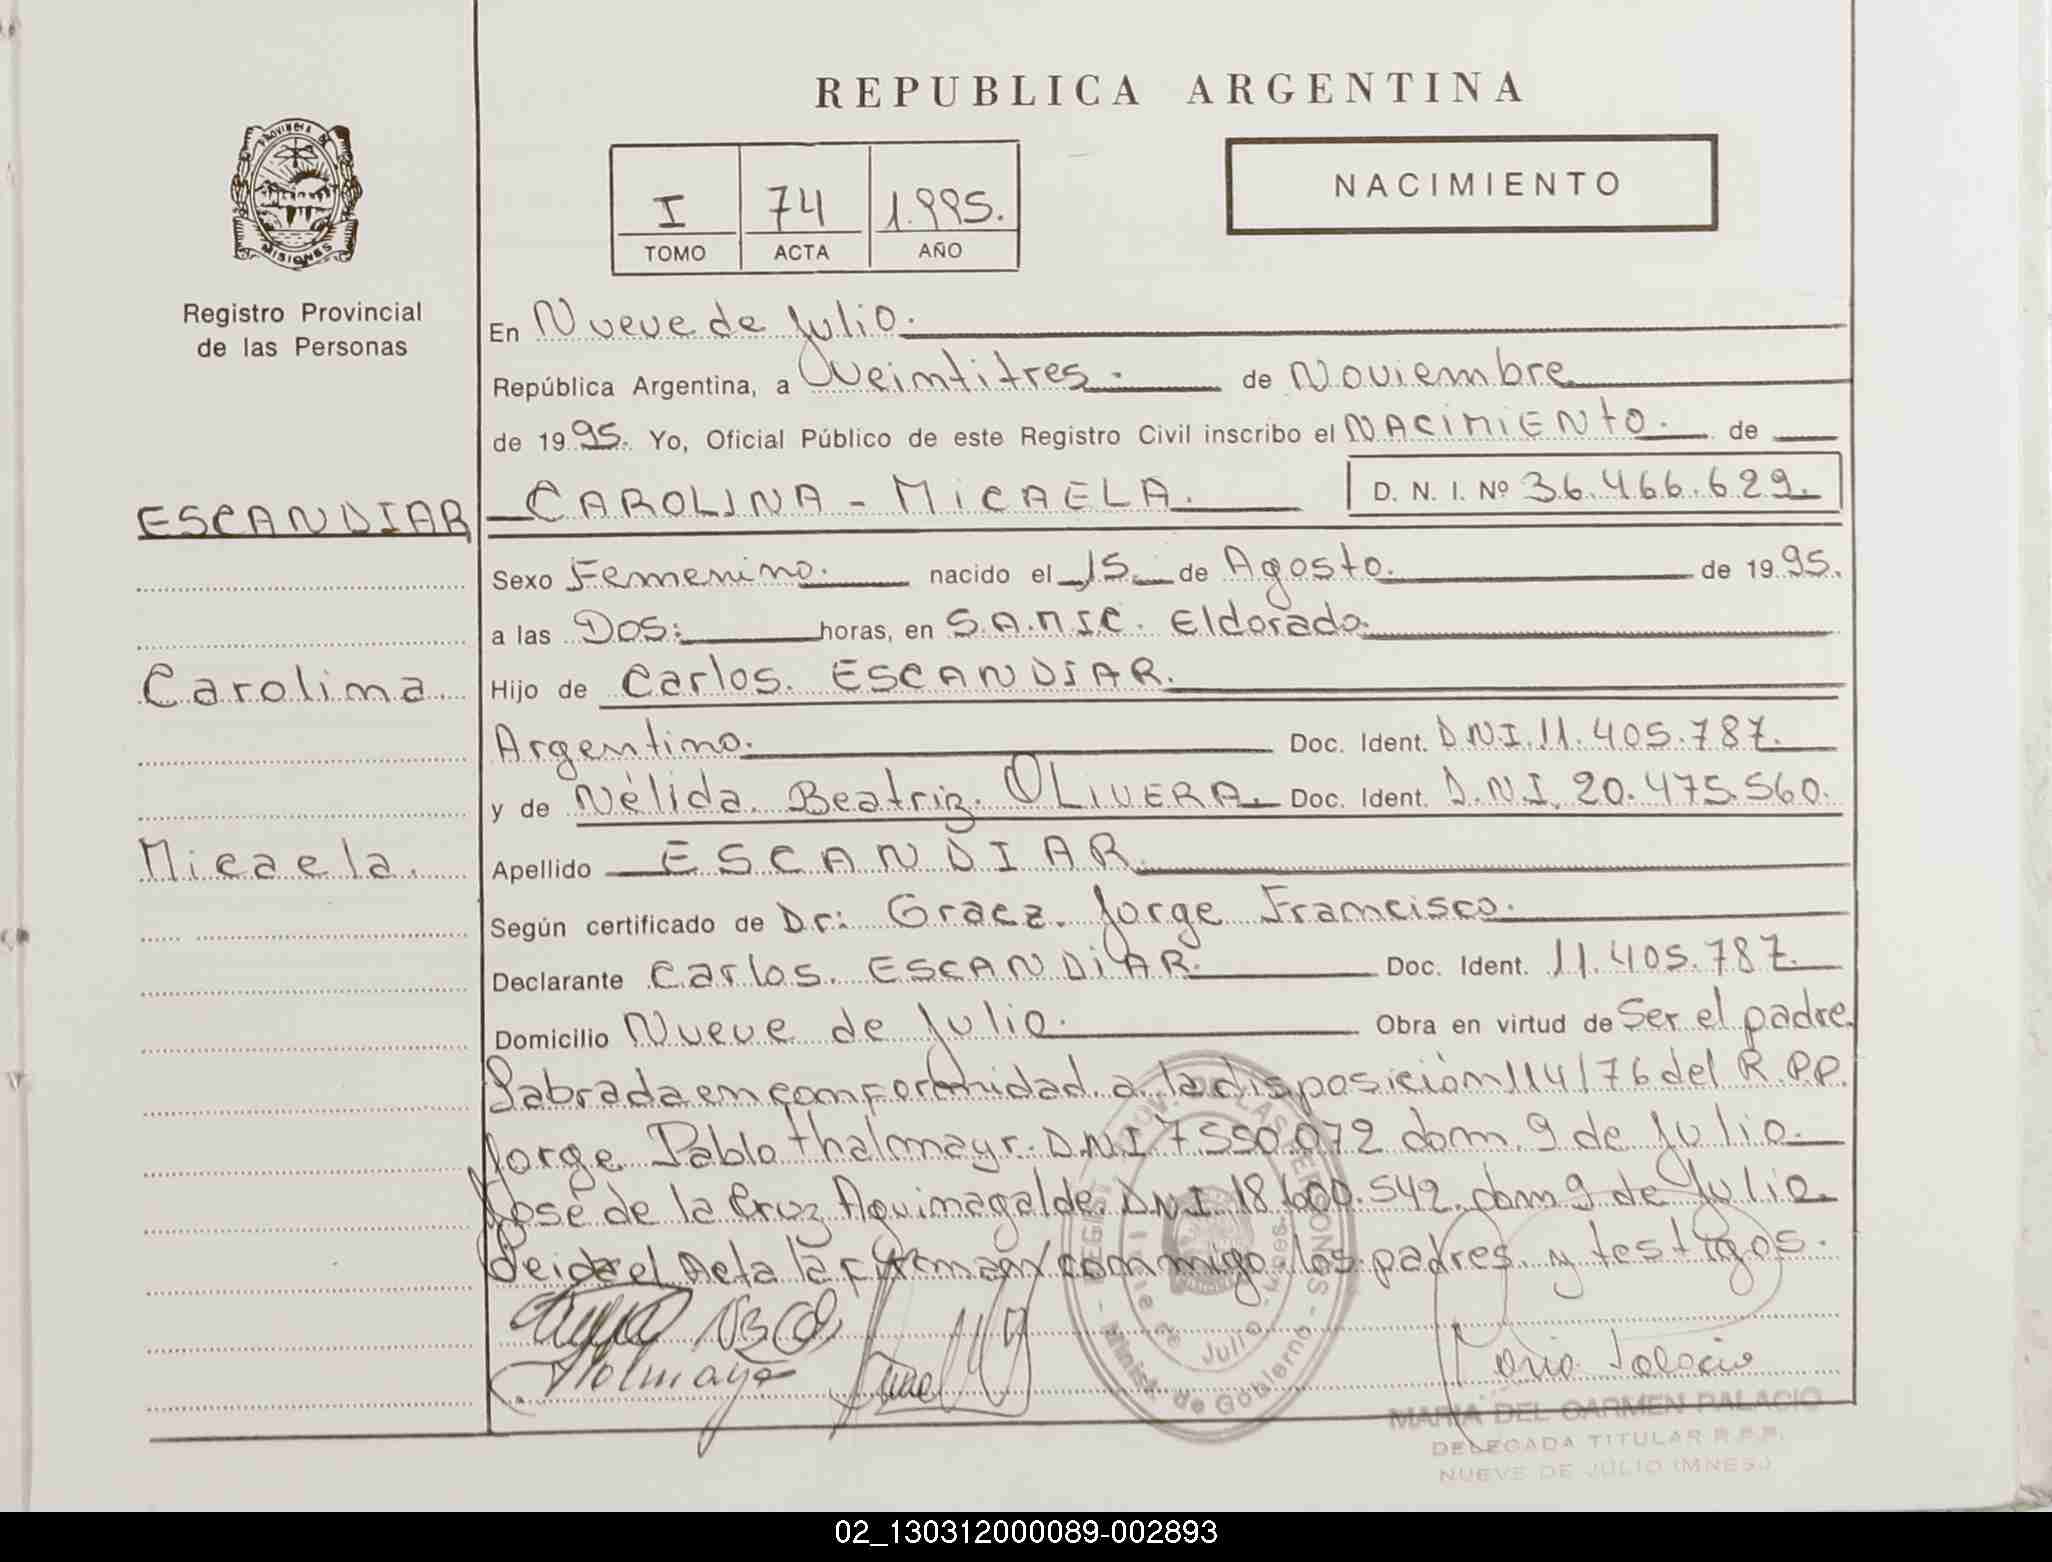 REPUBLICA ARGENTINA
PROVINCIA DE
MISIONES
Registro Provincial
de las Personas
I 74 1.995.
TOMO ACTA AÑO
NACIMIENTO
En Nueve de Julio.
República Argentina, a Veintitres. de Noviembre
de 1995. Yo, Oficial Público de este Registro Civil inscribo el NACIMIENTO. de
ESCANDIAR
CAROLINA - MICAELA. D. N. I. Nº 36.466.629.
Sexo Femenino. nacido el 15 de Agosto. de 1995.
a las Dos: horas, en S.A.M.I.C. Eldorado.
Carolina
Hijo de Carlos. ESCANDIAR.
Argentino. Doc. Ident. D.N.I. 11.405.787.
y de Nélida. Beatriz. OLIVERA. Doc. Ident. D.N.I. 20.475.560.
Micaela.
Apellido ESCANDIAR.
Según certificado de Dr: Graez. Jorge Francisco.
Declarante Carlos. ESCANDIAR. Doc. Ident. 11.405.787.
Domicilio Nueve de Julio. Obra en virtud de Ser el padre.
Labrada en conformidad a la disposición 114/76 del R.P.P.
Jorge Pablo thalmayr. D.N.I 7550.072 dom. 9 de Julio.
José de la Cruz Aguinagalde. D.N.I. 18.600.542. dom 9 de Julio.
Leida el Acta la firman conmigo los padres y testigos.
Minist. de Gobierno
de Julio
María Palacio
MARIA DEL CARMEN PALACIO
DELEGADA TITULAR R.P.P.
NUEVE DE JULIO (MNES.)
02_130312000089-002893